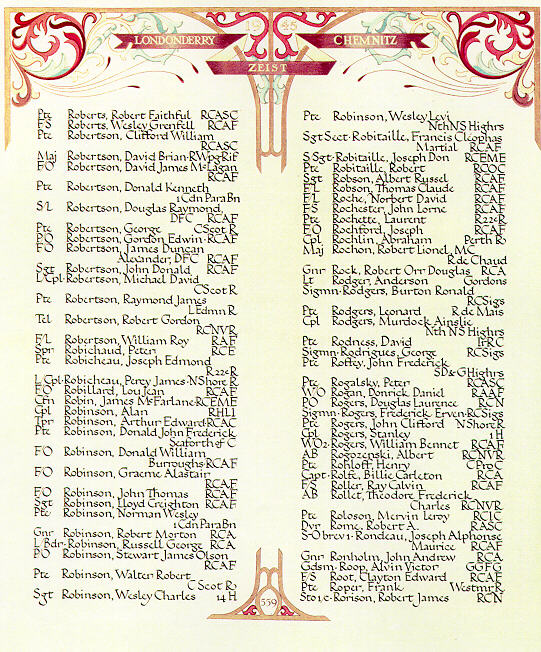 LONDONDERRY
19 45
CHEMNITZ
ZEIST
Pte Roberts, Robert Faithful RCASC
FS Roberts, Wesley Grenfell RCAF
Pte Robertson, Clifford William
RCASC
Maj Robertson, David Brian·RWpgRif
FO Robertson, David James McLagan
RCAF
Pte Robertson, Donald Kenneth
1CdnParaBn
S/L Robertson, Douglas Raymond,
DFC RCAF
Pte Robertson, George CScotR
PO Robertson, Gordon Edwin·RCAF
FO Robertson, James Duncan
Alexander, DFC RCAF
Sgt Robertson, John Donald RCAF
L/Cpl·Robertson, Michael David
CScotR
Pte Robertson, Raymond James
LEdmnR
Tel Robertson, Robert Gordon
RCNVR
F/L Robertson, William Roy RAF
Spr Robichaud, Peter RCE
Pte Robicheau, Joseph Edmond
R22eR
L/Cpl·Robicheau, Percy James·NShoreR
FO Robillard, Lou Jean RCAF
Cfn Robin, James McFarlane·RCEME
Cpl Robinson, Alan RHLI
Tpr Robinson, Arthur Edward·RCAC
Pte Robinson, Donald John Frederick
Seaforth of C
FO Robinson, Donald William
Burroughs·RCAF
FO Robinson, Graeme Alastair
RCAF
FO Robinson, John Thomas RCAF
Sgt Robinson, Lloyd Creighton RCAF
Pte Robinson, Norman Wesley
1CdnParaBn
Gnr Robinson, Robert Morton RCA
L/Bdr·Robinson, Russell George RCA
PO Robinson, Stewart James Olson
RCAF
Pte Robinson, Walter Robert
CScotR
Sgt Robinson, Wesley Charles 14H
Pte Robinson, Wesley Levi
NthNSHighrs
Sgt Sect·Robitaille, Francis Cleophas
Martial RCAF
S/Sgt·Robitaille, Joseph Don RCEME
Pte Robitaille, Robert RCOC
Sgt Robson, Albert Russel RCAF
F/L Robson, Thomas Claude RCAF
F/L Roche, Norbert David RCAF
FS Rochester, John Lorne RCAF
Pte Rochette, Laurent R22eR
FO Rochford, Joseph RCAF
Cpl Rochlin, Abraham Perth R
Maj Rochon, Robert Lionel, MC
R de Chaud
Gnr Rock, Robert Orr Douglas RCA
Lt Rodger, Anderson Gordons
Sigmn·Rodgers, Burton Ronald
RCSigs
Pte Rodgers, Leonard R de Mais
Cpl Rodgers, Murdock Ainslie
Nth NS Highrs
Pte Rodness, David IrRC
Sigmn·Rodrigues, George RCSigs
Pte Roffey, John Frederick
SD&GHighrs
Pte Rogalsky, Peter RCASC
W/O Rogan, Donrick Daniel RAAF
PO Rogers, Douglas Laurence RCN
Sigmn·Rogers, Frederick Erven·RCSigs
Pte Rogers, John Clifford NShoreR
Cpl Rogers, Stanley 1H
WO2·Rogers, William Bennet RCAF
AB Rogozenski, Albert RCNVR
Pte Rohloff, Henry CProC
Capt·Rolfe, Billie Carleton RCA
FS Roller, Ray Calvin RCAF
AB Rollet, Théodore Frederick
Charles RCNVR
Pte Roloson, Mervin Leroy RCIC
Dvr Rome, Robert A. RASC
S·Obrev1·Rondeau, Joseph Alphonse
Maurice RCAF
Gnr Ronholm, John Andrew RCA
Gdsm·Roop, Alvin Victor GGFG
FS Root, Clayton Edward RCAF
Pte Roper, Frank WestmrR
Sto1c·Rorison, Robert James RCN
559